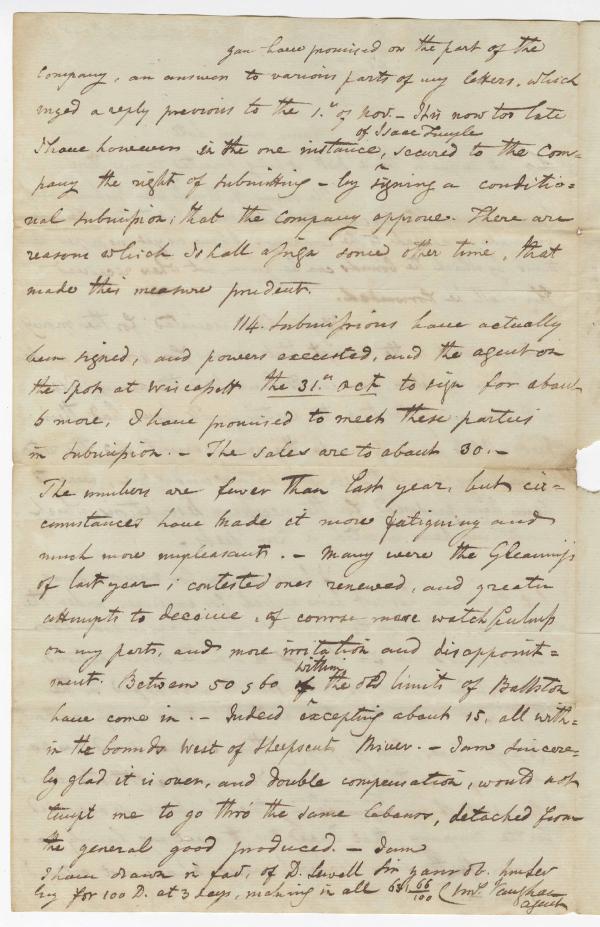 you have promised on the part of the
Company, an answer to various parts of my letters, which
urged a reply previous to the 1.st of Nov. - It is now too late
of Isaac
I have however in the one instance, secured to the Com=
pany the right of submitting - by signing a conditio=
nal submission; that the Company approve. There are
reasons which I shall assign some other time, that
made this measure prudent.
114. submissions have actually
been signed, and powers executed, and the agent on
the spot at Wiscassett the 31.st Oct to sign for about
6 more, I have promised to meet these parties
in submission. - The sales are to about 30. -
The numbers are fewer than last year, but cir=
cumstances have made it more fatiguing and
much more unpleasant. - Many were the Gleanings
of last year; contested ones renewed, and greater
attempts to deceive, of course more watchfulness
on my part, and more irritation and disappoint=
within
ment. Between 50 & 60 the old limits of Ballston
have come in. - Indeed excepting about 15, all with=
in the bounds West of Sheepscut River. - I am sincere=
ly glad it is over, and double compensation, would not
tempt me to go thro' the same labours, detached from
the general good produced. - I am
I have drawn in fav. of D. Sewell Sir your ob. hm Ser
for 100 D. at 3 days, making in all 66/100 Vaughan
agent